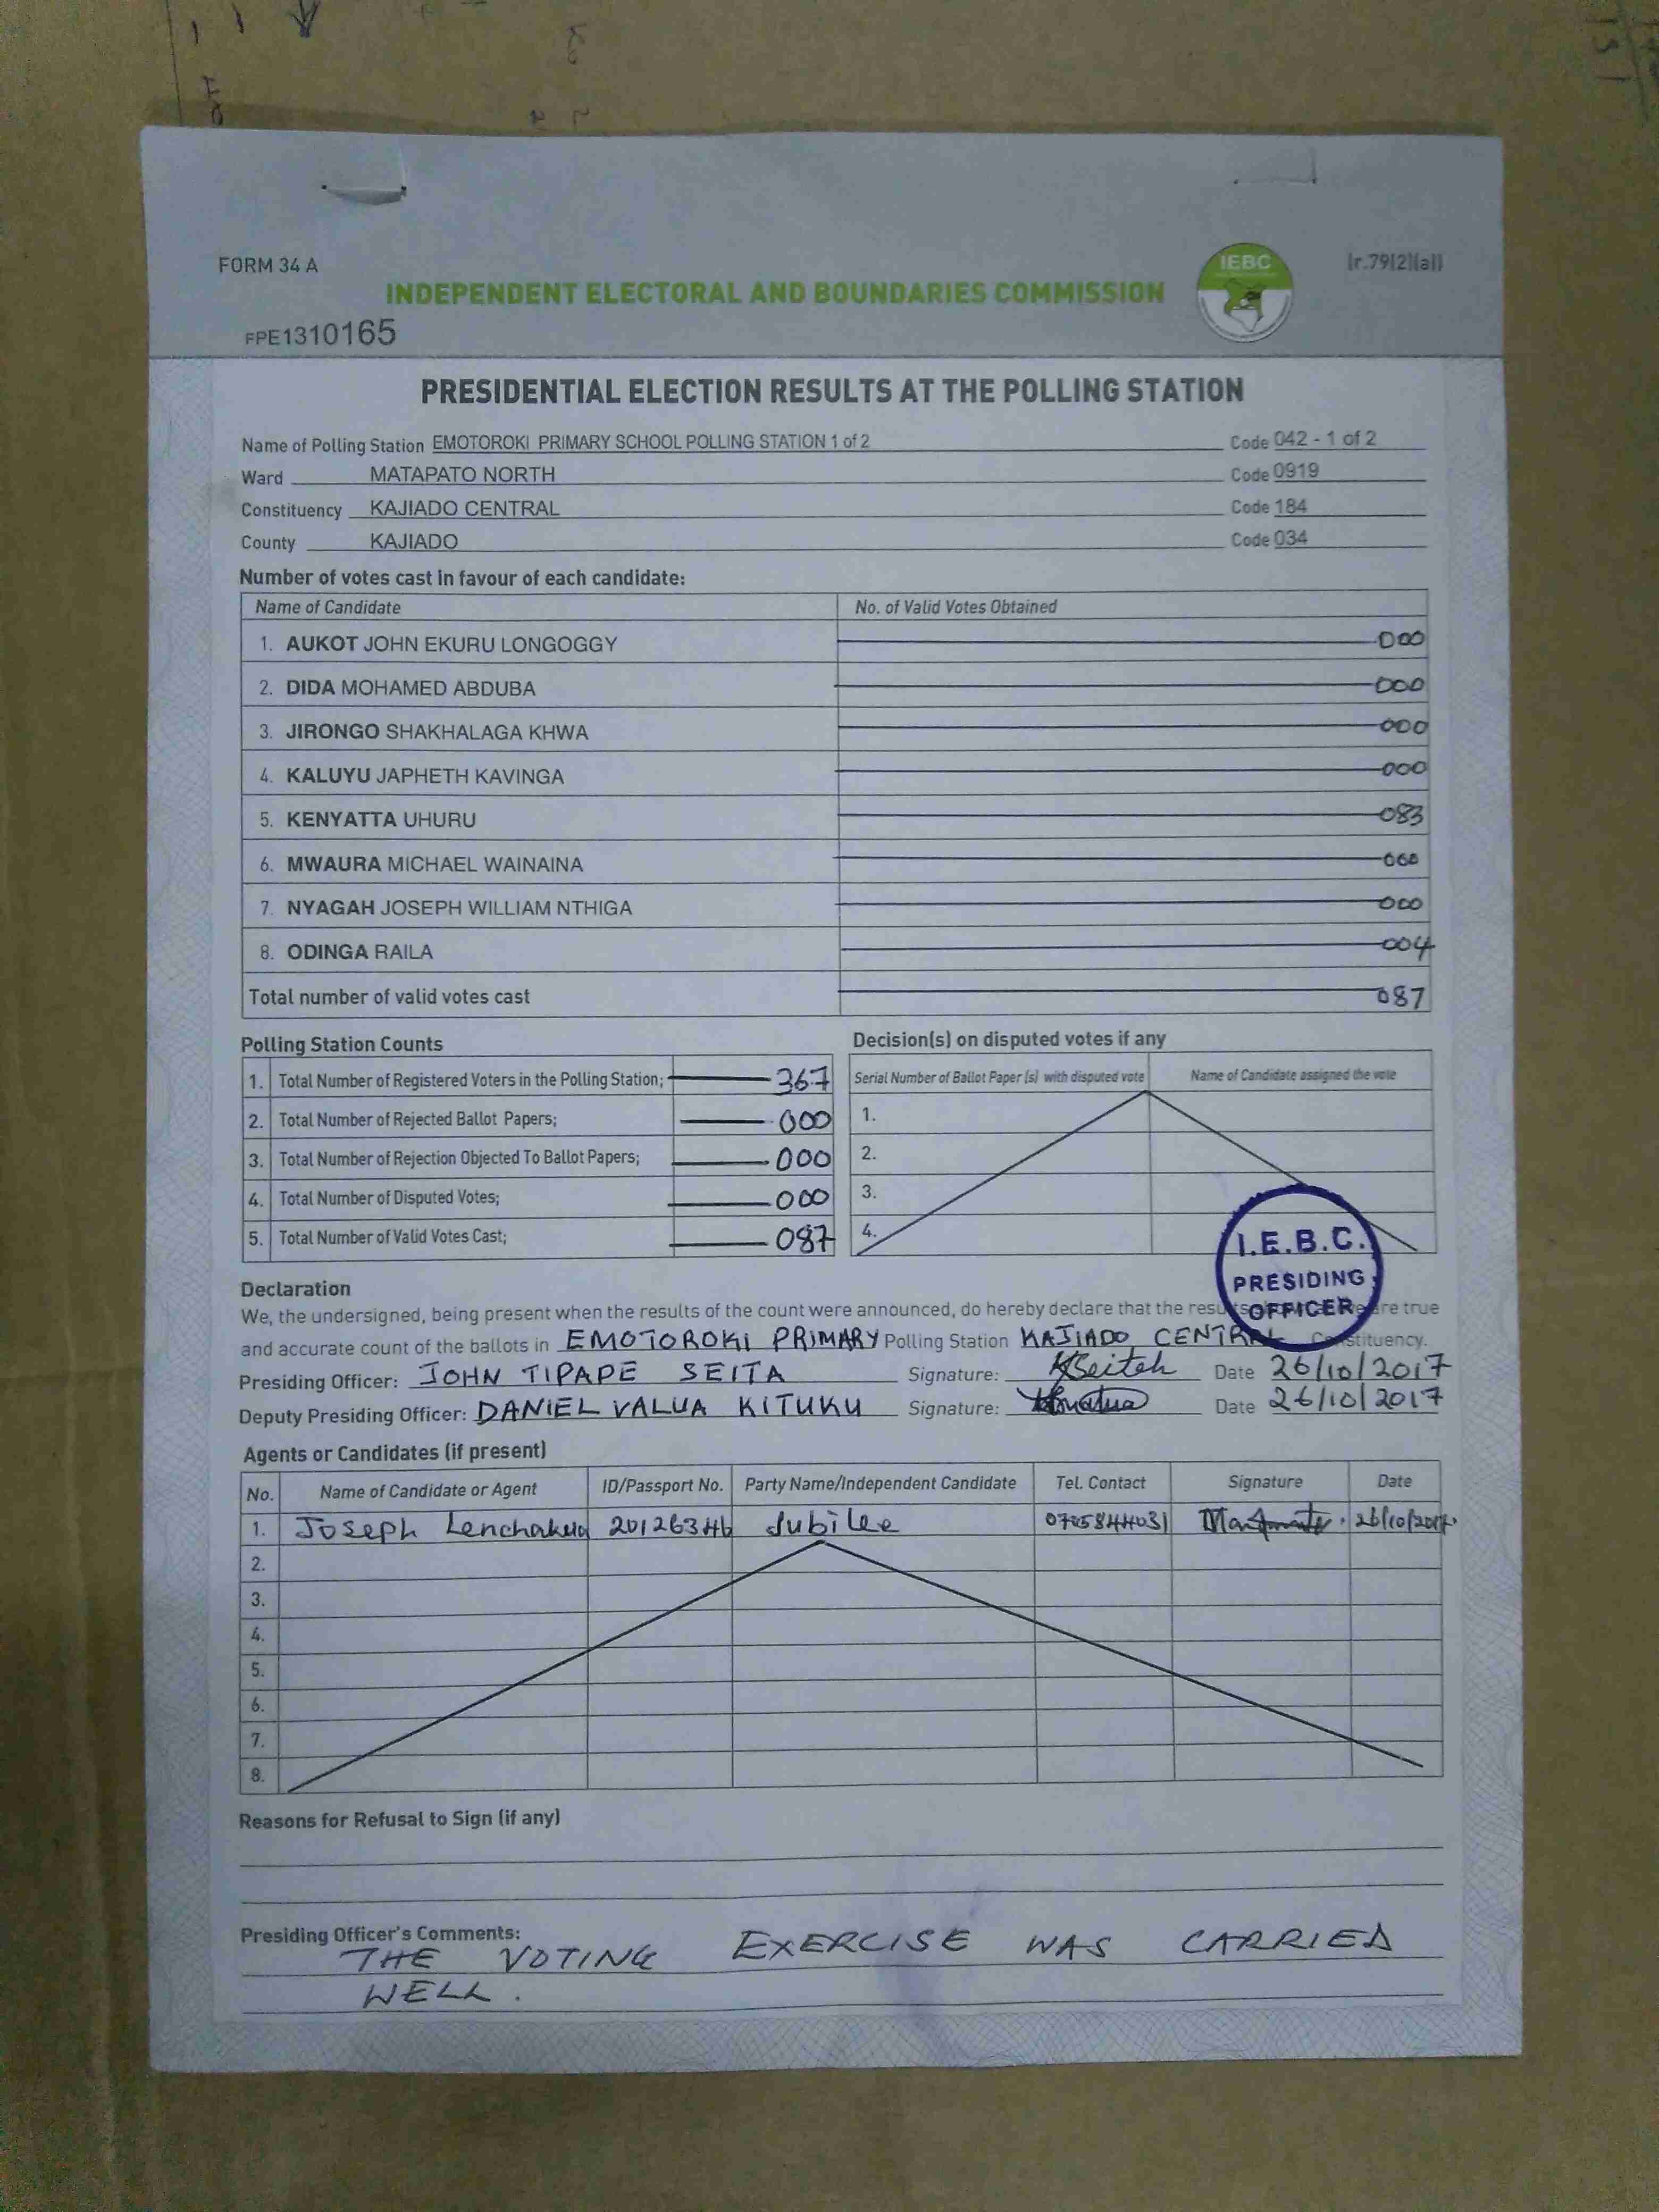 FORM 34 A
IEBC
(r.79(2)(a))
INDEPENDENT ELECTORAL AND BOUNDARIES COMMISSION
FPE1310165
PRESIDENTIAL ELECTION RESULTS AT THE POLLING STATION
Name of Polling Station EMOTOROKI PRIMARY SCHOOL POLLING STATION 1 of 2 Code 042 - 1 of 2
Ward MATAPATO NORTH Code 0919
Constituency KAJIADO CENTRAL Code 184
County KAJIADO Code 034
Number of votes cast in favour of each candidate:
Name of Candidate No. of Valid Votes Obtained
1. AUKOT JOHN EKURU LONGOGGY 000
2. DIDA MOHAMED ABDUBA 000
3. JIRONGO SHAKHALAGA KHWA 000
4. KALUYU JAPHETH KAVINGA 000
5. KENYATTA UHURU 083
6. MWAURA MICHAEL WAINAINA 000
7. NYAGAH JOSEPH WILLIAM NTHIGA 000
8. ODINGA RAILA 004
Total number of valid votes cast 087
Polling Station Counts
1. Total Number of Registered Voters in the Polling Station; 367
2. Total Number of Rejected Ballot Papers; 000
3. Total Number of Rejection Objected To Ballot Papers; 000
4. Total Number of Disputed Votes; 000
5. Total Number of Valid Votes Cast; 087
Decision(s) on disputed votes if any
Serial Number of Ballot Paper (s) with disputed vote Name of Candidate assigned the vote
1.
2.
3.
4.
I.E.B.C.
PRESIDING
OFFICER
Declaration
We, the undersigned, being present when the results of the count were announced, do hereby declare that the results are true
and accurate count of the ballots in EMOTOROKI PRIMARY Polling Station KAJIADO CENTRAL Constituency.
Presiding Officer: JOHN TIPAPE SEITA Signature: Date 26/10/2017
Deputy Presiding Officer: DANIEL VALUA KITUKU Signature: Date 26/10/2017
Agents or Candidates (if present)
No. Name of Candidate or Agent ID/Passport No. Party Name/Independent Candidate Tel. Contact Signature Date
1. Joseph Jubilee 26/10/2017
2.
3.
4.
5.
6.
7.
8.
Reasons for Refusal to Sign (if any)
Presiding Officer's Comments:
THE VOTING EXERCISE WAS CARRIED
WELL.